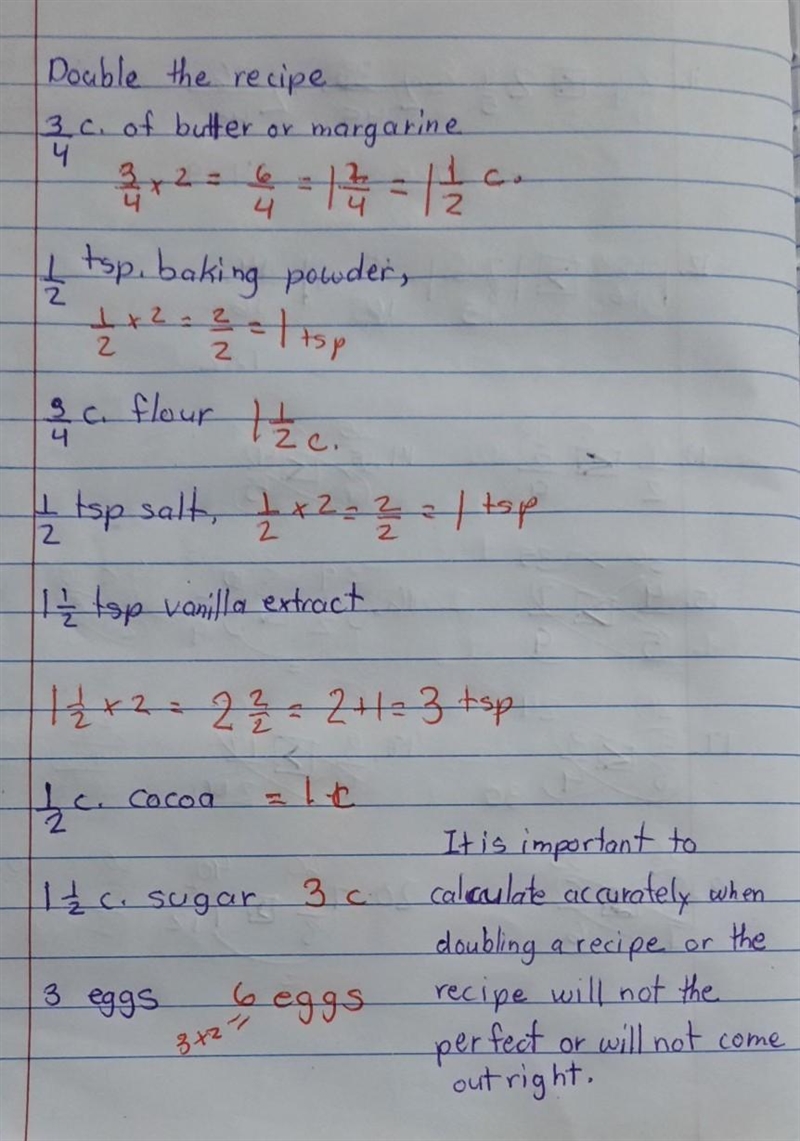 Double the recipe
3/4 c. of butter or margarine
3/4 x 2 = 6/4 = 1 2/4 = 1 1/2 c.
1/2 tsp. baking powder,
1/2 x 2 = 2/2 = 1 tsp
3/4 c. flour 1 1/2 c.
1/2 tsp salt, 1/2 x 2 = 2/2 = 1 tsp
1 1/2 tsp vanilla extract
1 1/2 x 2 = 2 2/2 = 2+1 = 3 tsp
1/2 c. cocoa = 1 c
1 1/2 c. sugar 3 c
3 eggs 6 eggs
3x2 =
It is important to
calculate accurately when
doubling a recipe or the
recipe will not the
perfect or will not come
out right.